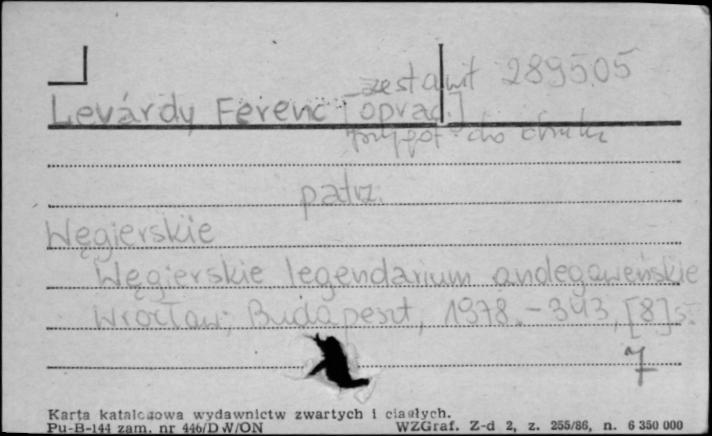 zestawił 289505
Levárdy Ferenc [oprac.]
przygot. do druku
patrz.
Węgierskie
Węgierskie legendarium andegaweńskie
Wrocław; Budapeszt, 1978. - 343, [8] s.
7
Karta katalogowa wydawnictw zwartych i ciągłych.
Pu-B-144 zam. nr 446/DW/ON WZGraf. Z-d 2, z. 255/86, n. 6 350 000